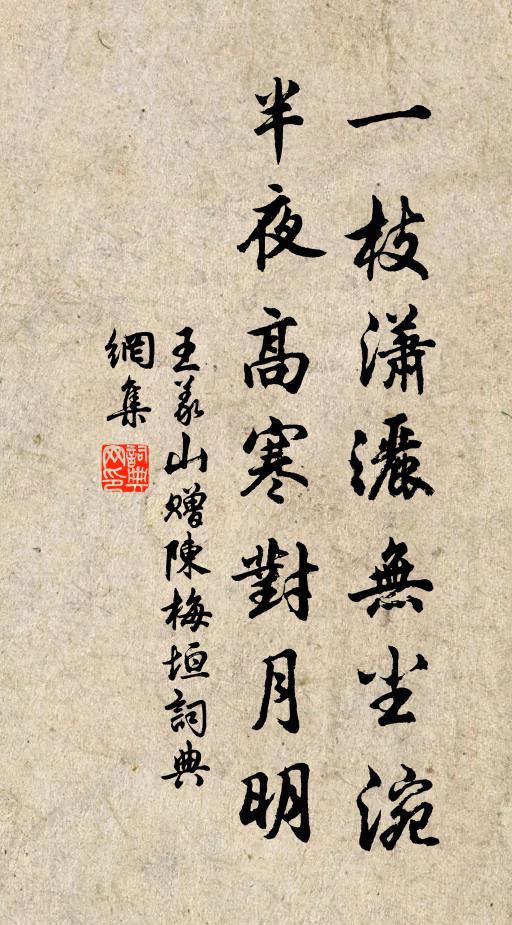 一枝瀟灑無尘涴
半夜高寒對月明
王義山贈陳梅垣詞典
網集
詞典
网印